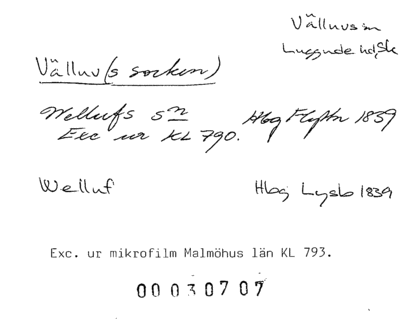 Välluvs sn
Luggude hd, Sk
Välluv(s socken)
Wellufs sn Hbg Flyttn 1839
Exc ur KL 790.
Welluf Hbg Lysb 1839
Exc. ur mikrofilm Malmöhus län KL 793.
00030707